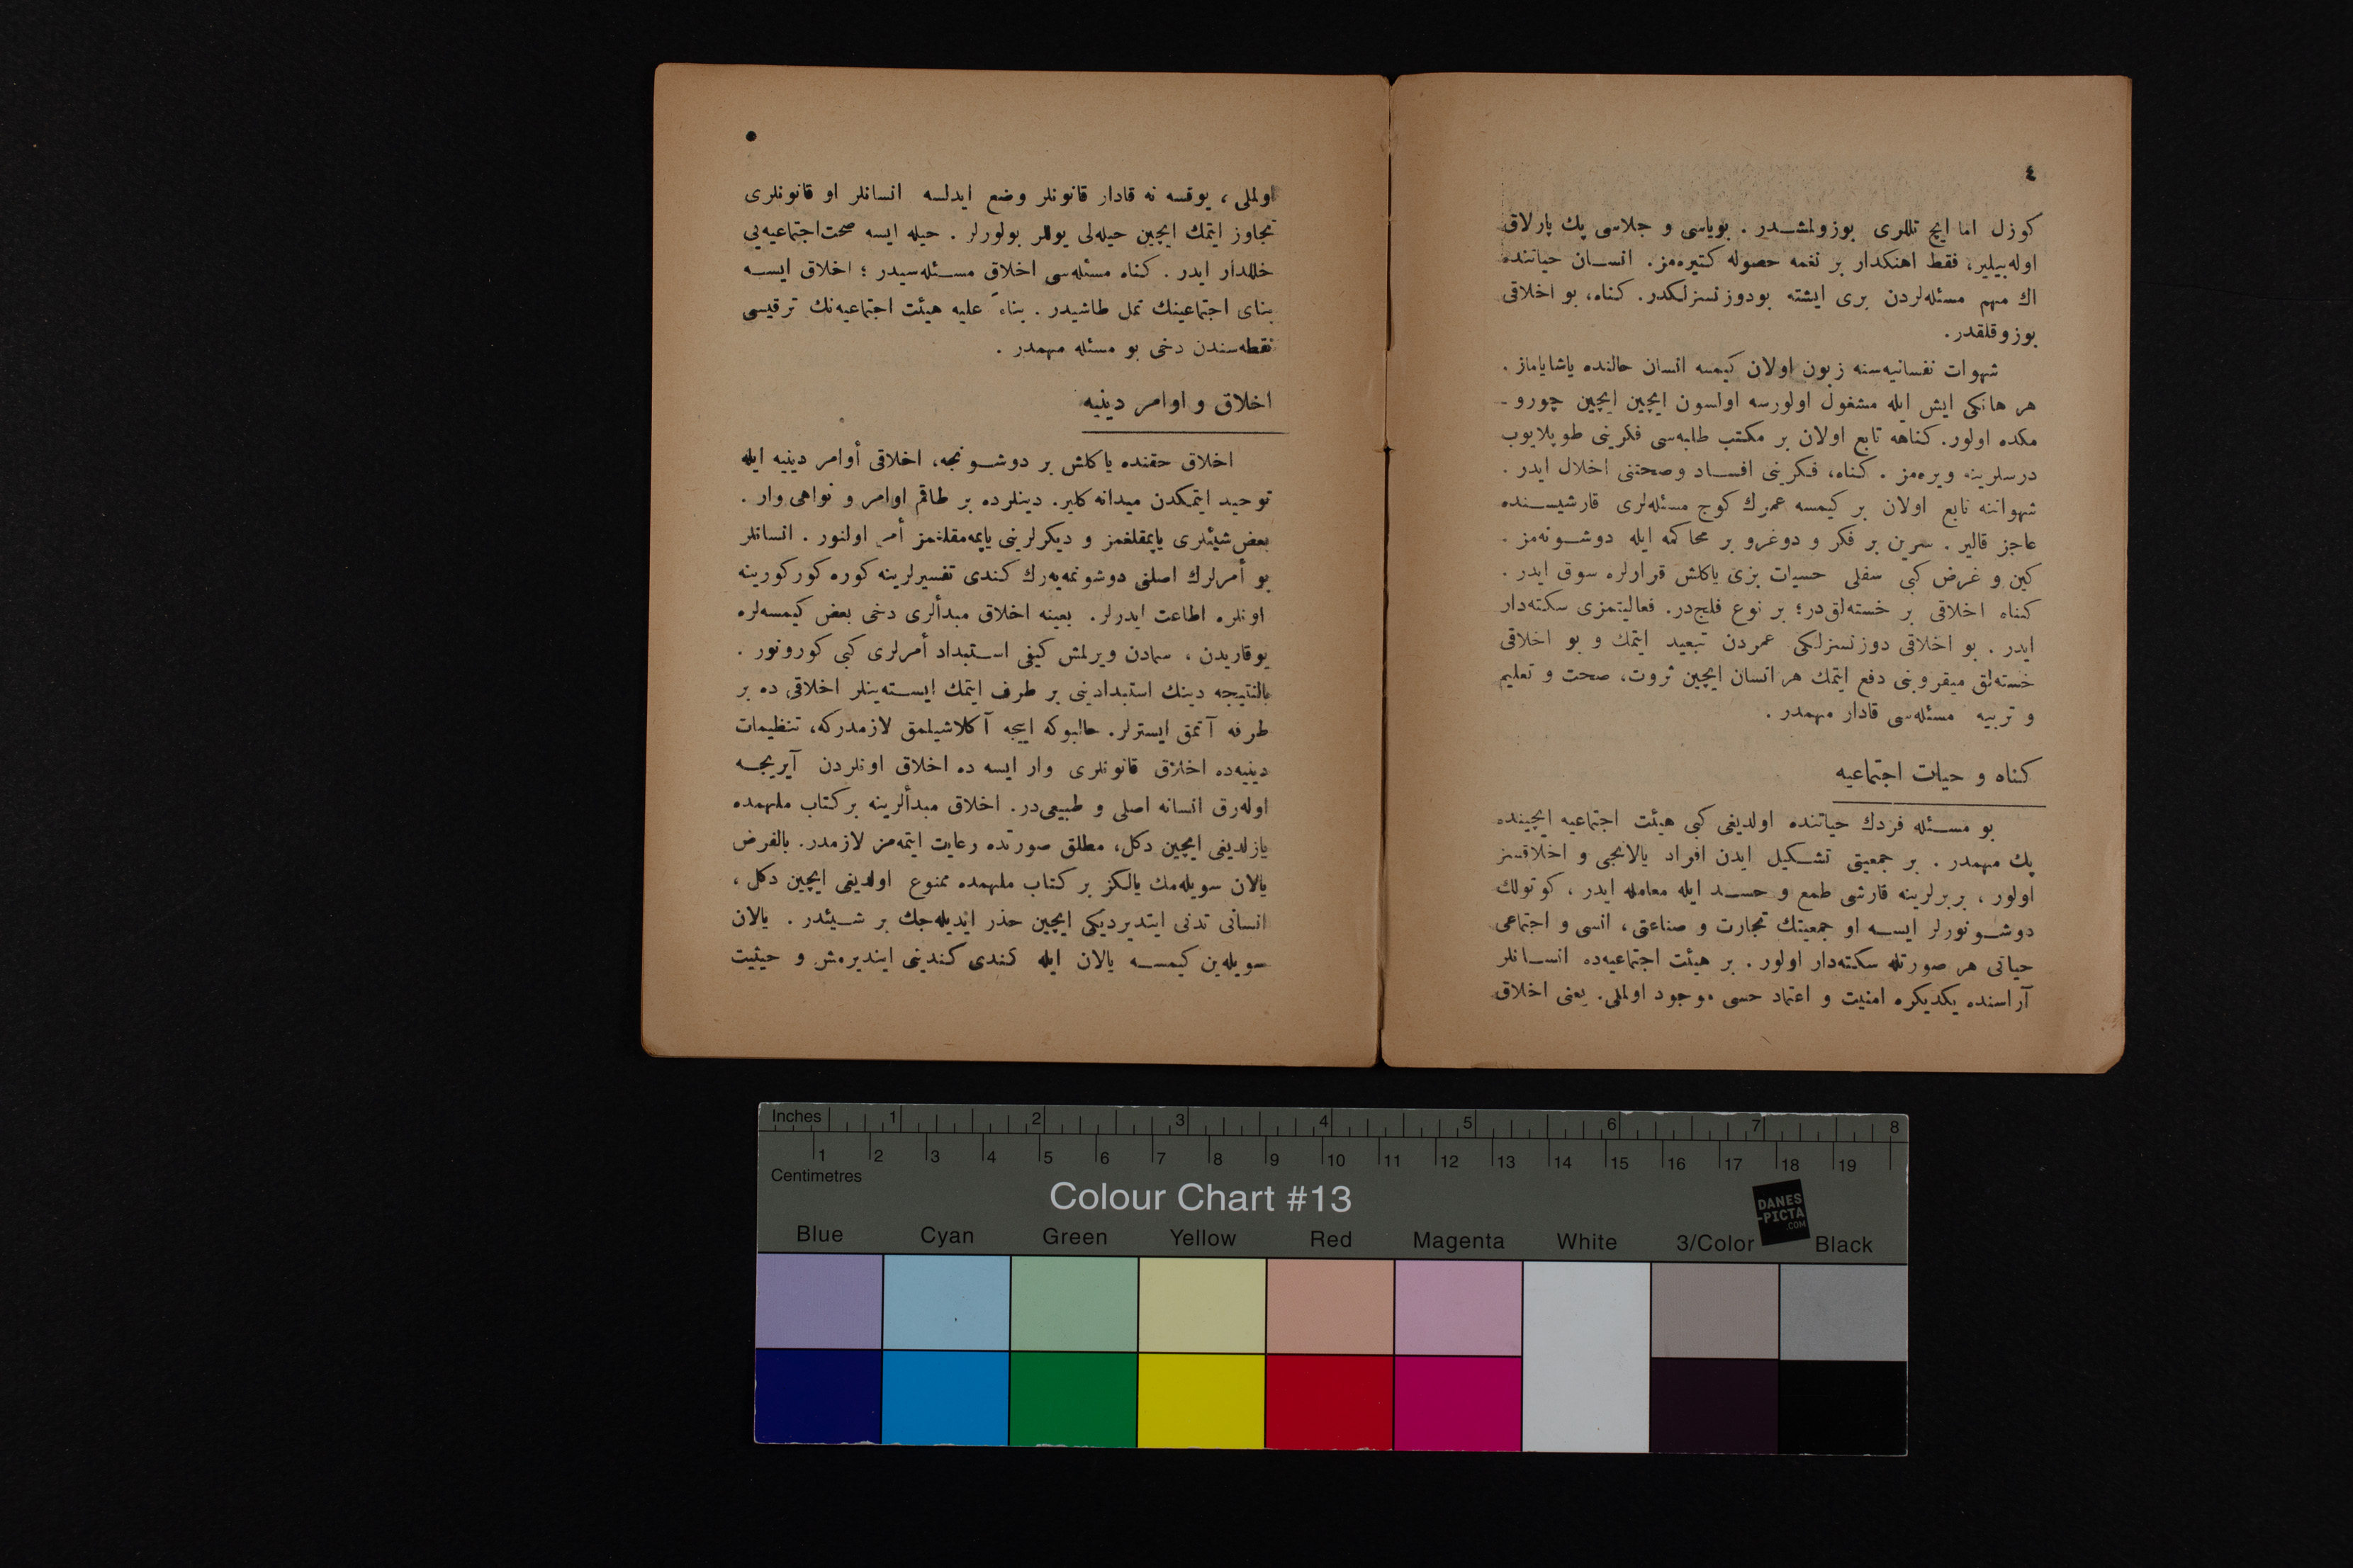 ٤
كوزل اما ایچ تللری بوزولمشدر . بویاسی و جلاسی پك پارلاق
اوله‌بیلیر، فقط اهنكدار بر نغمه حصوله كتیره‌مز. انسان حیاتنده
اك مهم مسئله‌لردن بری ایشته بودوزنسزلكدر. كناه، بو اخلاقی
بوزوقلقدر.
شهوات نفسانیه‌سنه زبون اولان كیمسه انسان حالنده یاشایاماز .
هر هانكی ایش ایله مشغول اولورسه اولسون ایچین ایچین چورو-
مكده اولور. كناهه تابع اولان بر مكتب طلبه‌سی فكرینی طوپلایوب
درسلرینه ویره‌مز . كناه، فكرینی افساد وصحتنی اخلال ایدر .
شهواتنه تابع اولان بر كیمسه عمرك كوج مسئله‌لری قارشیسنده
عاجز قالیر . سرین بر فكر و دوغرو بر محاكمه ایله دوشونه‌مز .
كین و غرض كبی سفلی حسیات بزی یاكلش قرارلره سوق ایدر .
كناه اخلاقی بر خسته‌لق‌در؛ بر نوع فلج‌در. فعالیتمزی سكته‌دار
ایدر . بو اخلاقی دوزنسزلكی عمردن تبعید ایتمك و بو اخلاقی
خسته‌لق میقروبنی دفع ایتمك هر انسان ایچین ثروت، صحت و تعلیم
و تربیه مسئله‌سی قادار مهمدر .
كناه و حیات اجتماعیه
بو مسئله فردك حیاتنده اولدیغی كبی هیئت اجتماعیه ایچینده
پك مهمدر . بر جمعیتی تشكیل ایدن افراد یالانجی و اخلاقسز
اولور ، بربرلرینه قارشی طمع و حسد ایله معامله ایدر ، كوتولك
دوشونورلر ایسه او جمعیتك تجارت و صناعتی، انسی و اجتماعی
حیاتی هر صورتله سكته‌دار اولور . بر هیئت اجتماعیه‌ده انسانلر
آراسنده یكدیكره امنیت و اعتماد حسی موجود اولملی. یعنی اخلاق
اولملی ، یوقسه نه قادار قانونلر وضع ایدلسه انسانلر او قانونلری
تجاوز ایتمك ایچین حیله‌لی یوللر بولورلر . حیله ایسه صحت‌اجتماعیه‌یی
خللدار ایدر . كناه مسئله‌سی اخلاق مسئله‌سیدر ؛ اخلاق ایسه
بنای اجتماعینك تمل طاشیدر . بناءً علیه هیئت اجتماعیه‌نك ترقیسی
نقطه‌سندن دخی بو مسئله مهمدر .
اخلاق و اوامر دینیه
اخلاق حقنده یاكلش بر دوشونجه، اخلاقی أوامر دینیه ایله
توحید ایتمكدن میدانه كلیر. دینلرده بر طاقم اوامر و نواهی وار .
بعض شیئلری یاپمقلغمز و دیكرلرینی یاپمه‌مقلغمز أمر اولنور . انسانلر
بو أمرلرك اصلنی دوشونمه‌یه‌رك كندی تفسیرلرینه كوره كوركورینه
اونلره اطاعت ایدرلر. بعینه اخلاق مبدألری دخی بعض كیمسه‌لره
یوقاریدن ، سمادن ویرلمش كیفی استبداد أمرلری كبی كورونور .
بالنتیجه دینك استبدادینی بر طرف ایتمك ایسته‌ینلر اخلاقی ده بر
طرفه آتمق ایسترلر. حالبوكه اییجه آكلاشیلمق لازمدركه، تنظیمات
دینیه‌ده اخلاق قانونلری وار ایسه ده اخلاق اونلردن آیریجه
اوله‌رق انسانه اصلی و طبیعی‌در. اخلاق مبدألرینه بركتاب ملهمده
یازلدیغی ایچین دكل، مطلق صورتده رعایت ایتمه‌مز لازمدر. بالفرض
یالان سویله‌مك یالكز بر كتاب ملهمده ممنوع اولدیغی ایچین دكل ،
انسانی تدنی ایتدیردیكی ایچین حذر ایدیله‌جك بر شیئدر . یالان
سویله‌ین كیمسه یالان ایله كندی كندینی ایندیرمش و حیثیت
Inches 1 2 3 4 5 6 7 8
1 2 3 4 5 6 7 8 9 10 11 12 13 14 15 16 17 18 19
Centimetres
Colour Chart #13
DANES
-PICTA
.COM
Blue Cyan Green Yellow Red Magenta White 3/Color Black